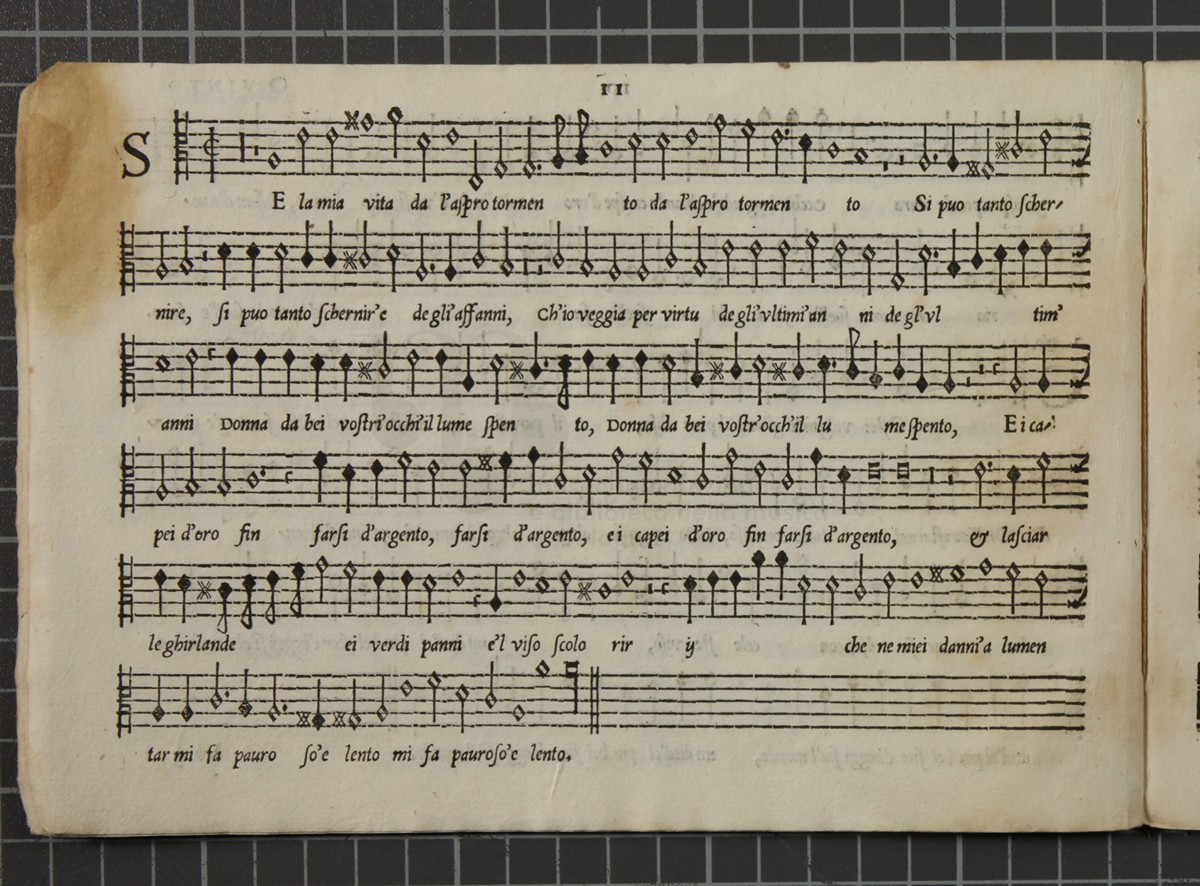 11
S
E la mia vita da l'aſpro tormen to da l'aſpro tormen to Si puo tanto ſcher/
nire, ſi puo tanto ſchernir'e de gli'affanni, Ch'io veggia per virtu de gli'vltimi'an ni de gl'vl tim'
anni Donna da bei voſtri'occhi'il lume ſpen to, Donna da bei voſtr'occh'il lu me ſpento, E i ca/
pei d'oro fin farſi d'argento, farſi d'argento, e i capei d'oro fin farſi d'argento, & laſciar
le ghirlande ei verdi panni e'l viſo ſcolo rir ij che ne miei danni'a lumen
tar mi fa pauro ſo'e lento mi fa pauroſo'e lento.